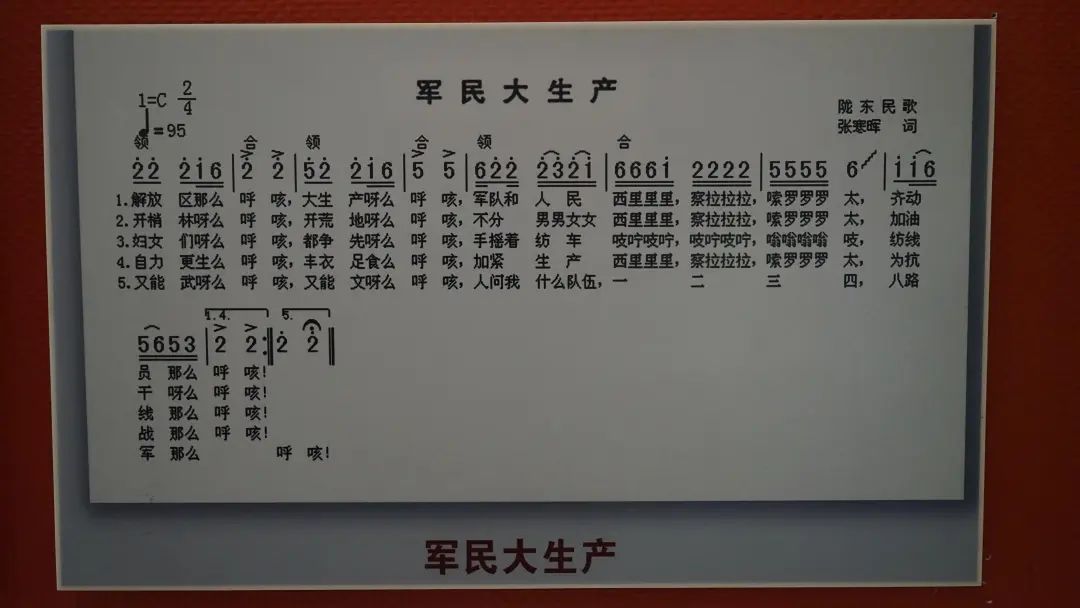 军民大生产
1=C 2/4
♩=95
陇东民歌
张寒晖 词
领 合 领 合 领 合
22 216 | 2 2 | 52 216 | 5 5 | 622 2321 | 6661 2222 | 5555 6 | 116
1.解放 区那么 呼 咳,大生 产呀么 呼 咳,军队和 人 民 西里里里,察拉拉拉,嗦罗罗罗 太, 齐动
2.开梢 林呀么 呼 咳,开荒 地呀么 呼 咳,不分 男男女女 西里里里,察拉拉拉,嗦罗罗罗 太, 加油
3.妇女 们呀么 呼 咳,都争 先呀么 呼 咳,手摇着 纺 车 吱咛吱咛,吱咛吱咛,嗡嗡嗡嗡 吱, 纺线
4.自力 更生么 呼 咳,丰衣 足食么 呼 咳,加紧 生 产 西里里里,察拉拉拉,嗦罗罗罗 太, 为抗
5.又能 武呀么 呼 咳,又能 文呀么 呼 咳,人问我 什么队伍,一 二 三 四, 八路
1.4. 5.
5653 | 2 2 :‖ 2 2 ‖
员 那么 呼 咳!
干 呀么 呼 咳!
线 那么 呼 咳!
战 那么 呼 咳!
军 那么 呼 咳!
军民大生产